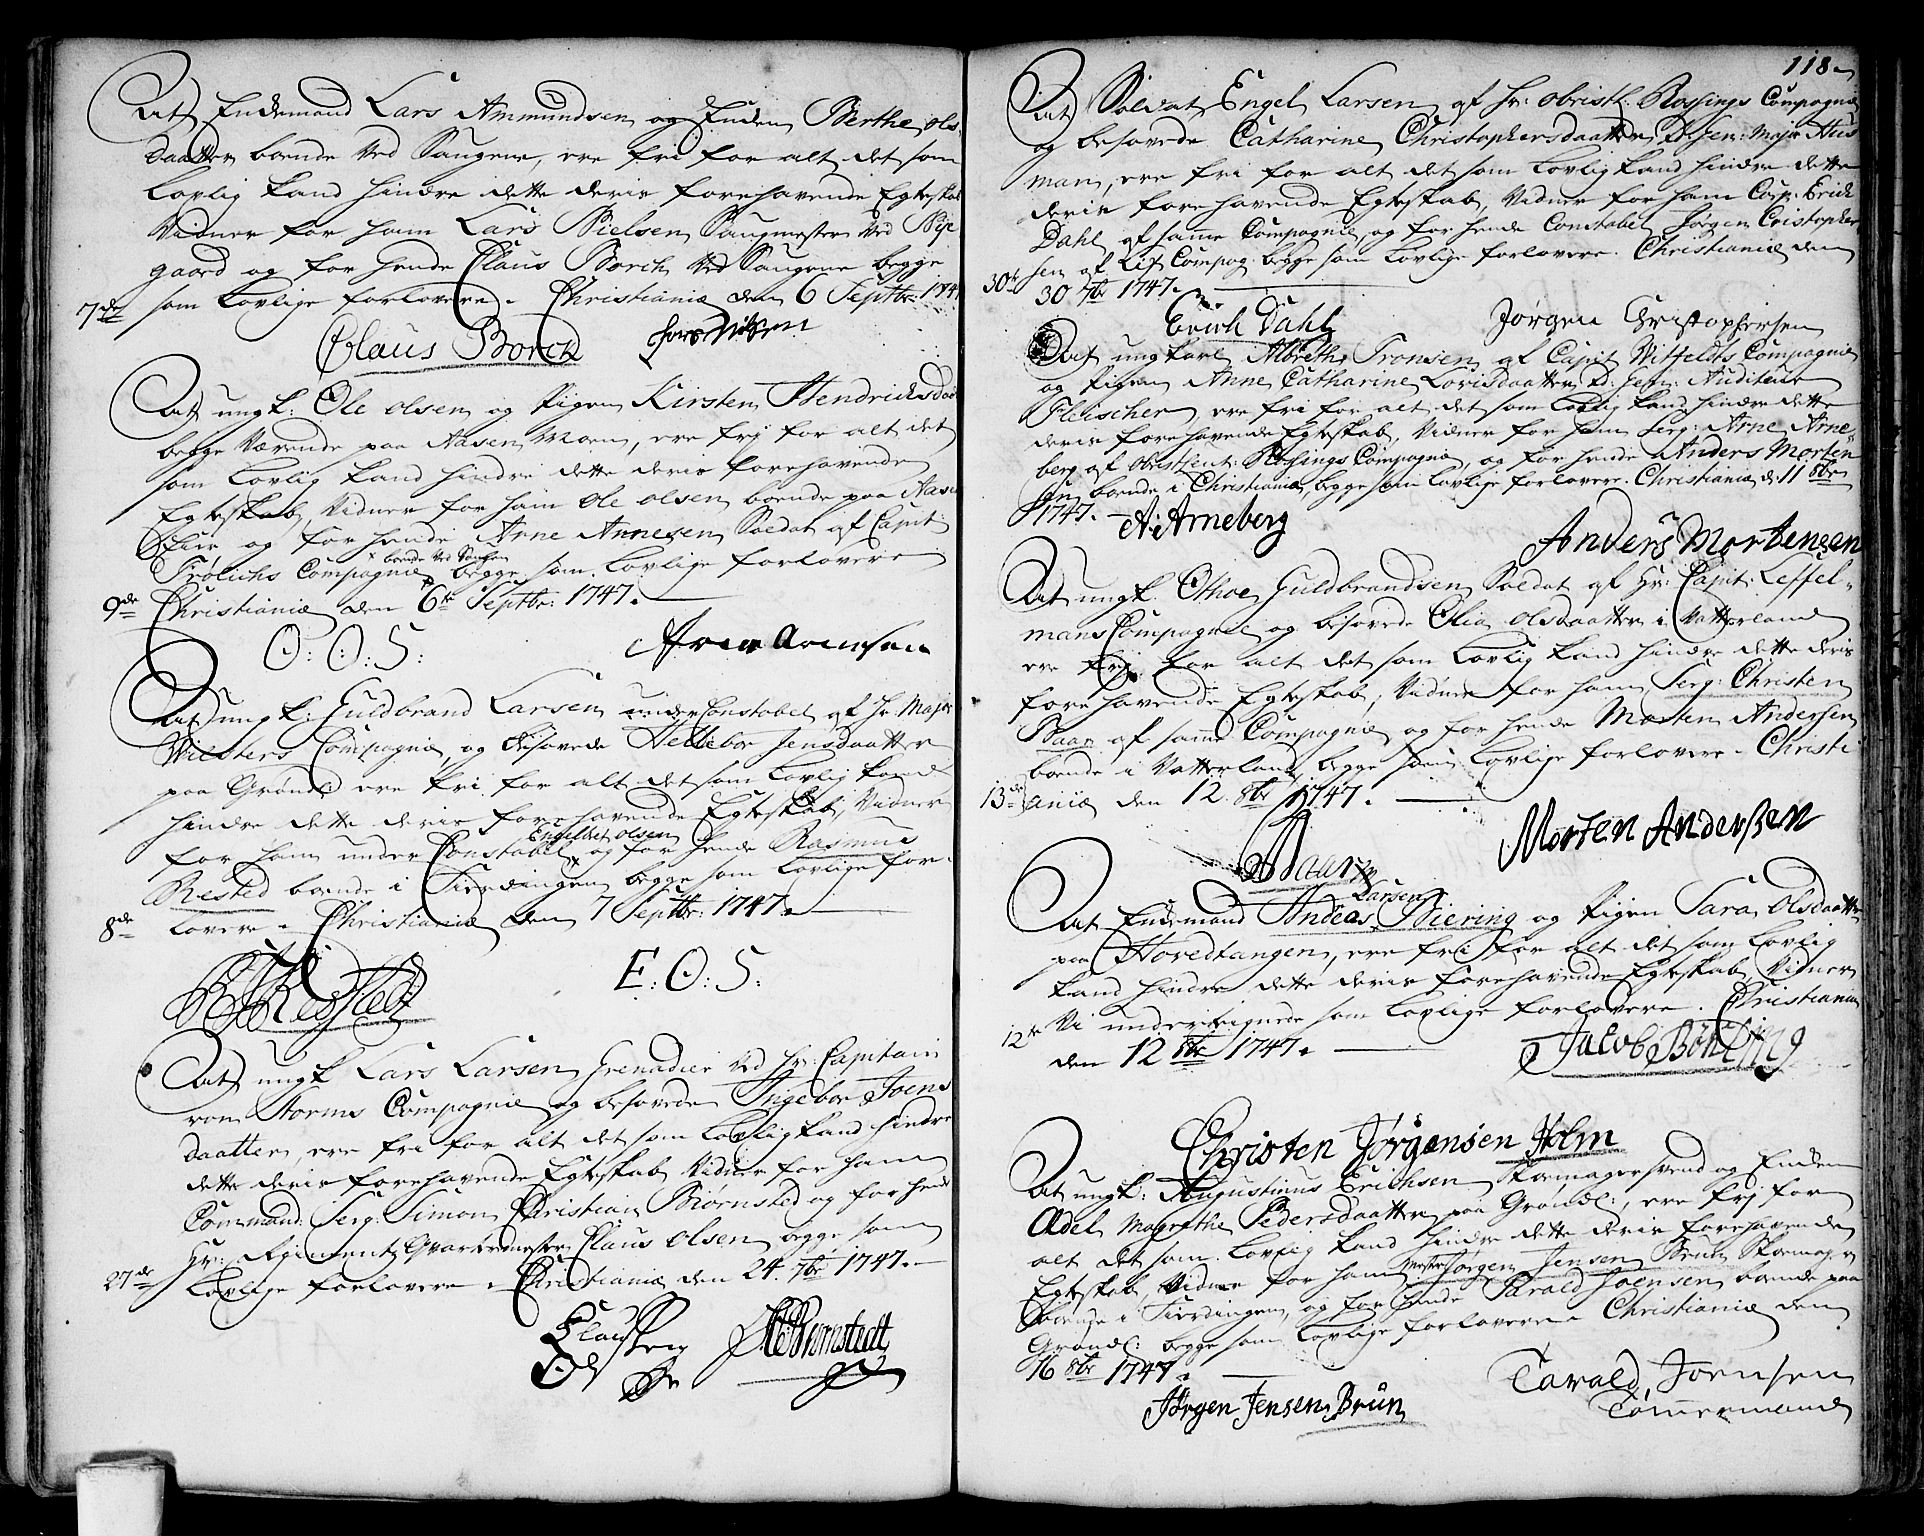 At Enckemand Lars Ammundsen og Encken Berthe Ols-
daatter boende ved Saugene, ere fri for alt det som
Lovlig kand hindre dette deris forehavende Egteskab
Vidner for ham Lars Nielsen Saugmester ved
gaard og for hende Claus Borch ved Saugene begge
7de som Lovlige forlovere. Christianiæ den 6 Septbr: 1747
Claus Borch Lars Nilsen
At ungk: Ole Olsen og Pigen Kirsten Hendrichsdaa
begge Værende paa Aasen Moen, ere frj for alt det
som Lovlig kand hindre dette deris forehavende
Egteskab, Vidner for ham Ole Olsen boende paa Aasen
og for hende Arne Arnesen Soldat af Capit:
boende ved Saugen
Frølichs Compagnie begge som Lovlige forlovere
9de Christianiæ den 6te Septbr: 1747.
O: O: S: Arne Arnesen
At ungk: Guldbrand Larsen under Constabel af Hr Major
Wilsters Compagnie, og besovede Hellebor Jensdaatter
paa Grønl: ere fri for alt det som Lovlig kand
hindre dette deris forehavende Egteskab, Vidner
Engelbret Olsen
for ham under Constabel og for hende Rasmus
Rested boende i Fierdingen begge som Lovlige for-
8de lovere. Christianiæ den 7 Septbr: 1747.
R Resstedt E: O: S:
At ungk Lars Larsen Grenadier ved Hr: Capitain
von Storms Compagnie og besovede Ingebor Joens
daatter, ere fri for alt det som Lovlig kand hindre
dette deris forehavende Egteskab Vidner for ham
Command: Serg: Simon Christian Biørnsted og for hende
Hr: Regiments Qvarteermester Claus Olsen begge som
27de Lovlige forlovere. Christianiæ den 24. 7br 1747.
Claus SC Biørnstedt
118
At Soldat Engel Larsen af Hr: Obristl: Rossings Compagnie
og besovede Catharine Christophersdaatter, D. Gen: Major Hus
man, ere fri for alt det som Lovlig kand hindre dette
deris forehavende Egteskab, Vidner for ham Corp: Erich
Dahl af samme Compagnie, og for hende Constabel Jørgen Cristopher
30te sen af Lif Compag: begge som Lovlige forlovere. Christianiæ den
30 7br 1747.
Erich Dahl Jørgen Christophersen
At ungkarl Albreth Tronsen af Capit Witfeldts Compagnie
og Pigen Anne Catharine Lorisdaatter, D: Gen: Auditeur
Fleischer, ere fri for alt det som Lovlig kand hindre dette
deris forehavende Egteskab, Vidner for ham Serg: Arne Arne-
berg af Obristleut: Rossings Compagnie, og for hende Anders Morten
sen boende i Christianiæ, begge som Lovlige forlovere. Christianiæ d: 11 8br
1747. A: Arneberg
Anders Mortensen
At ungk. Othoe Guldbrandsen Soldat af Hr: Capit: Leffel-
mans Compagnie og besovede Elia Olsdaatter i Vatterland
ere frj for alt det som Lovlig kand hindre dette deris
forehavende Egteskab, Vidner for ham Serg: Christen
af samme Compagnie og for hende Morten Andersen
boende i Vatterland begge som Lovlige forlovere. Christi
13de aniæ den 12 8br 1747.
Morten Anderßen
Larsen
At Enckemand Andeas Biering og Pigen Sara Olsdaatter
paa Hovedtangen, ere fri for alt det som Lovlig
kand hindre dette deris forehavende Egteskab, Vidner
12te Vi underteignede som Lovlige forlovere. Christianiæ
den 12 8br 1747.
Jacob Bøhling
Christen Jørgensen Holm
At ungk: Augustinus Erichsen Skoemagersvend og Encken
Ædel Magrethe Pedersdaatter paa Grønl:, ere frj for
alt det som Lovlig kand hindre dette deris forehavende
Egteskab, Vidner for ham Mester Jørgen Jensen Brun Skomager
boende i Fierdingen, og for hende Tarald Joensen boende paa
Grønl: begge som Lovlige forlovere Christianiæ den
16 8br 1747.
Jørgen Jensen Brun Tarald Joensen
Tømmermand